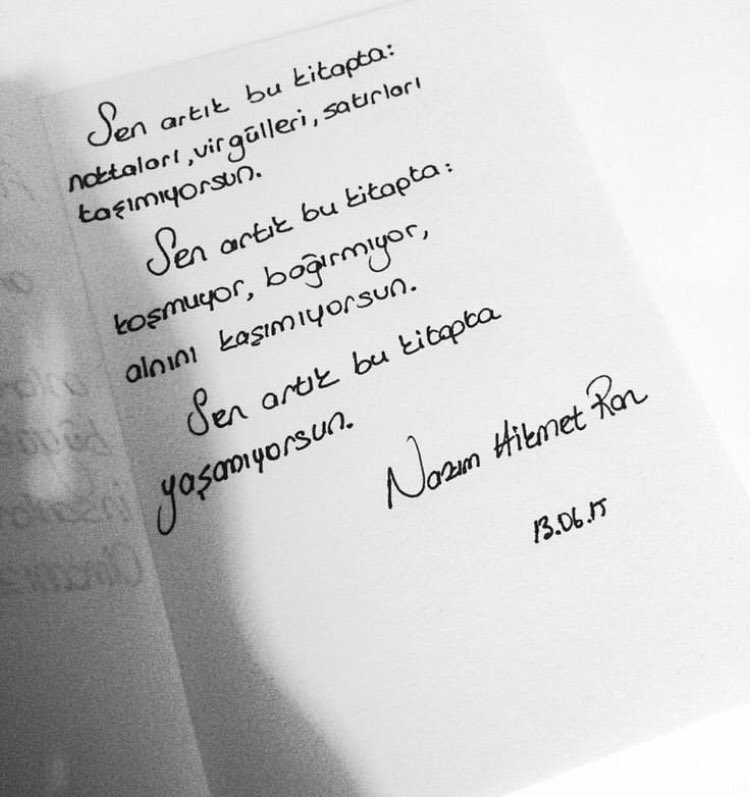 Sen artık bu kitapta:
noktaları, virgülleri, satırları
taşımıyorsun.
Sen artık bu kitapta:
koşmuyor, bağırmıyor,
alnını kaşımıyorsun.
Sen artık bu kitapta
yaşamıyorsun.
Nazım Hikmet Ran
13.06.15